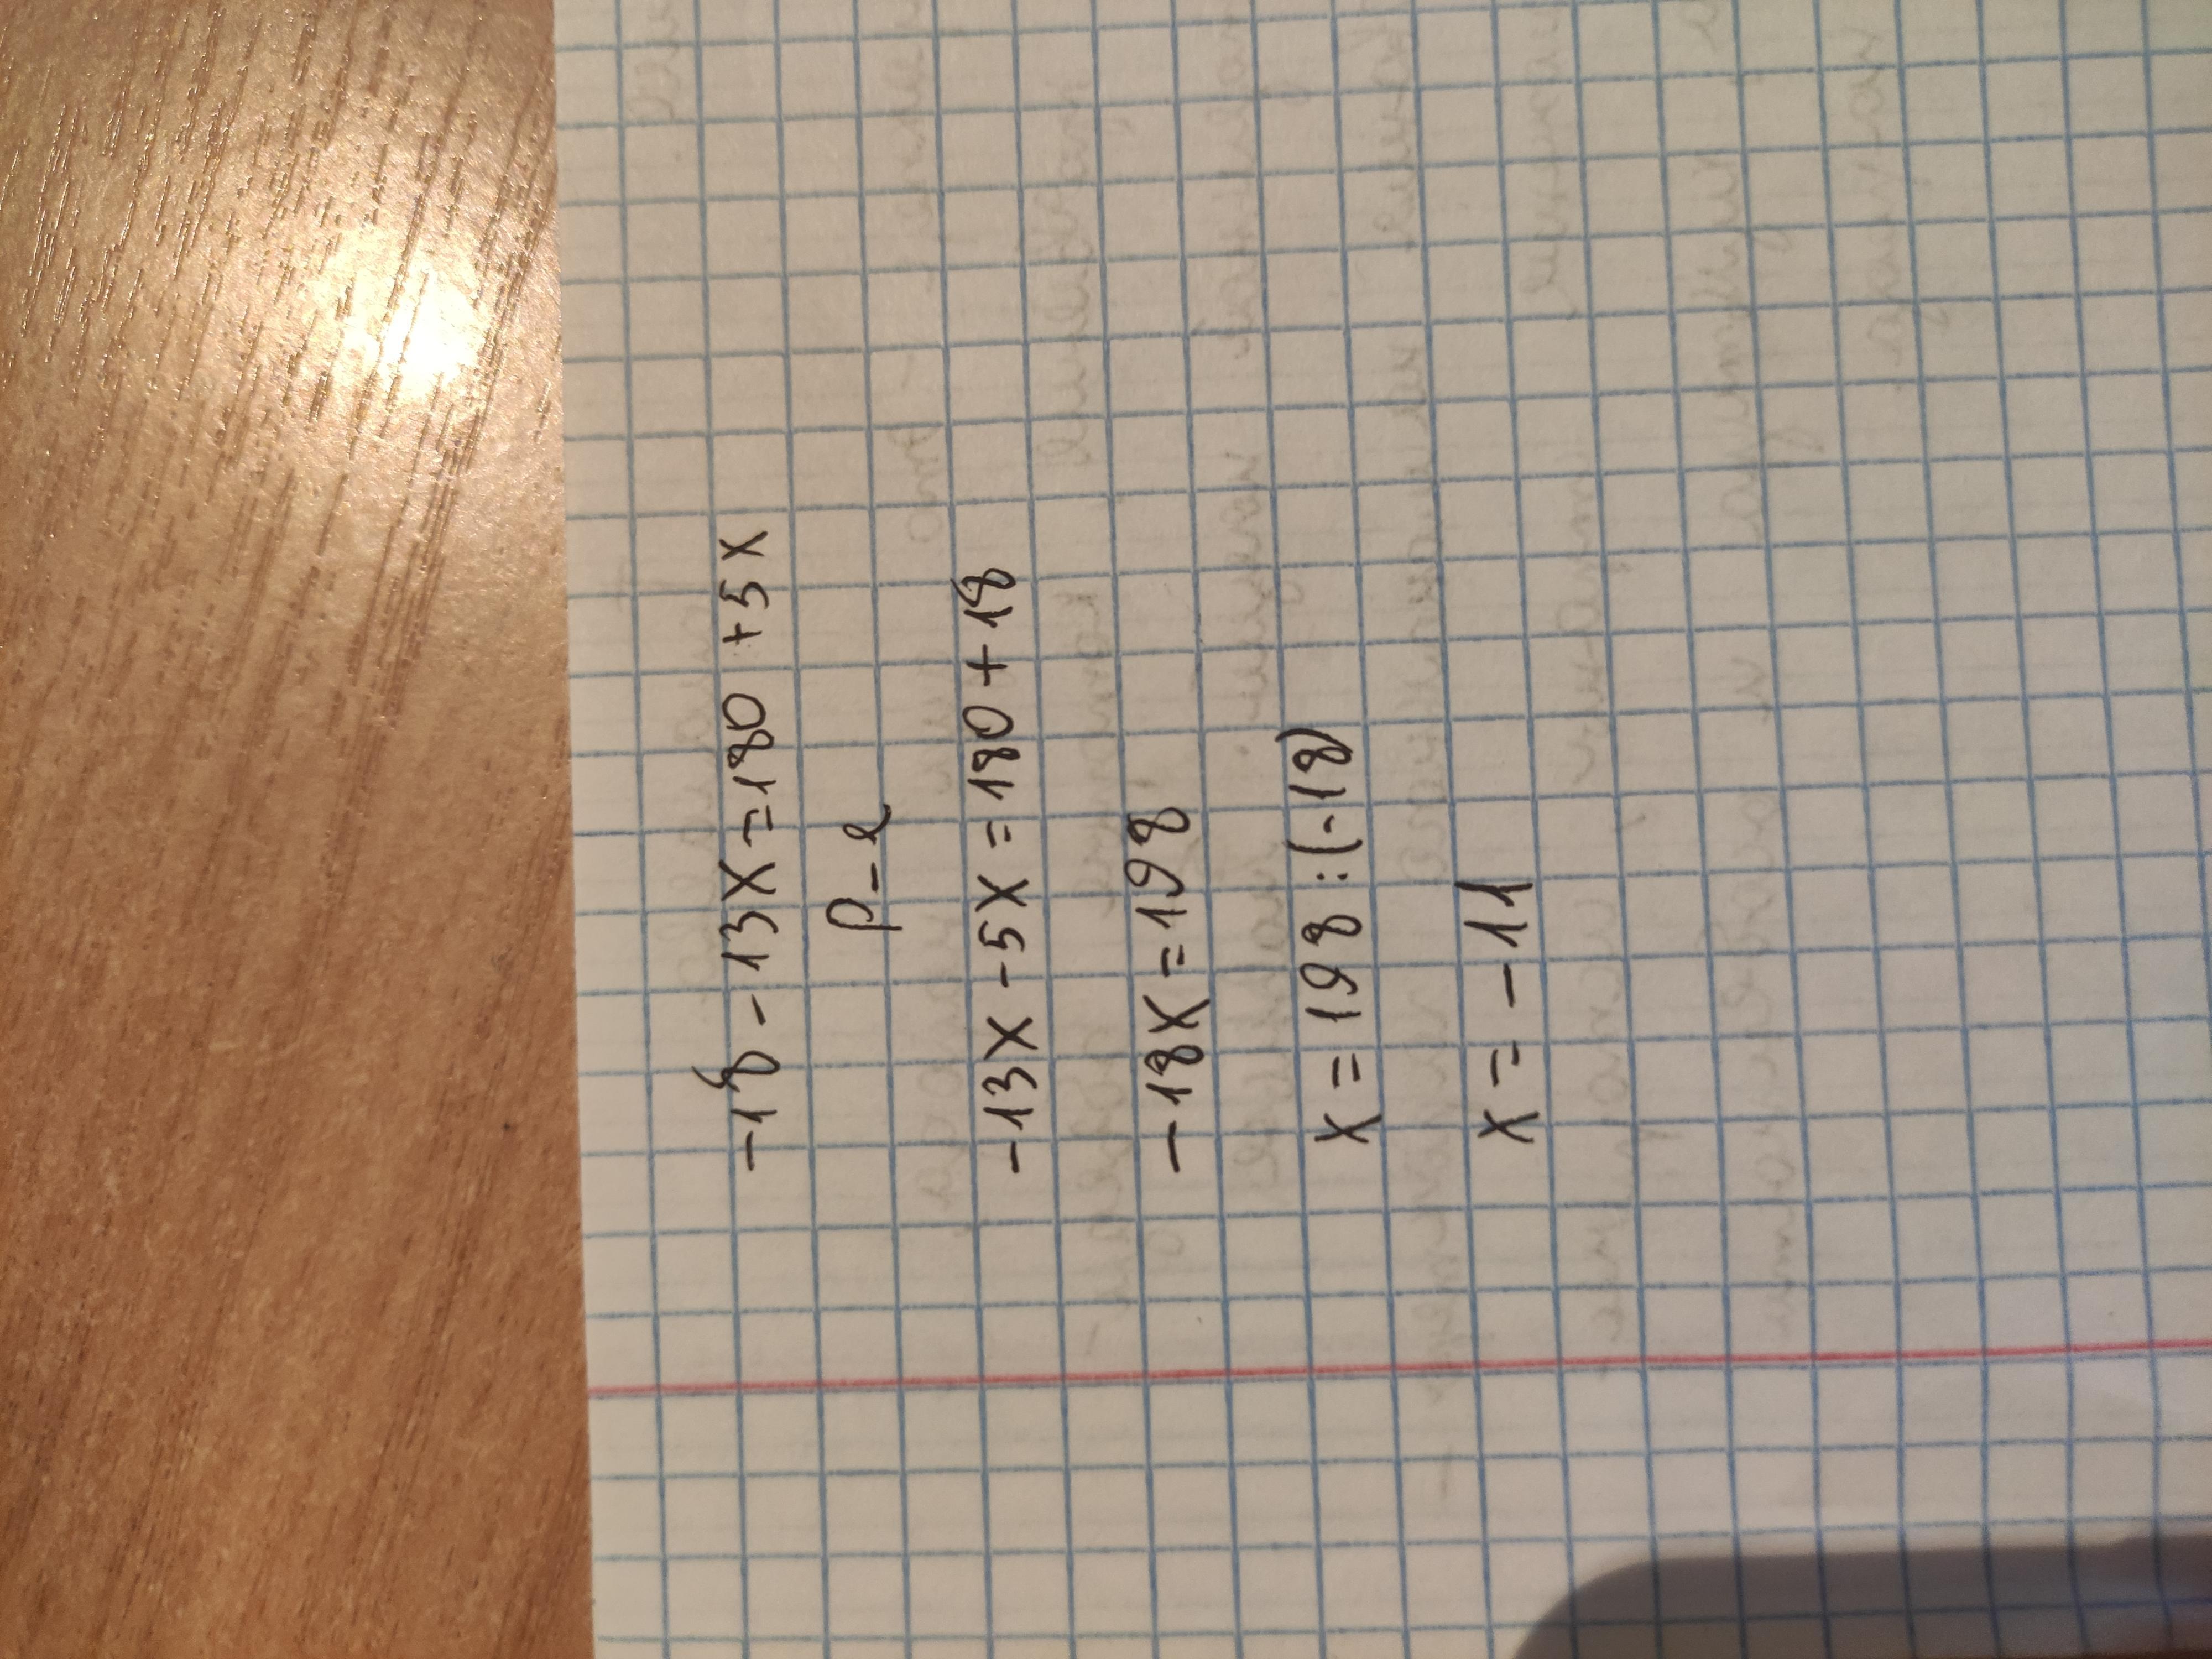 -18 - 13x = 180 + 5x
р-е
-13x - 5x = 180 + 18
-18x = 198
x = 198 : (-18)
x = -11